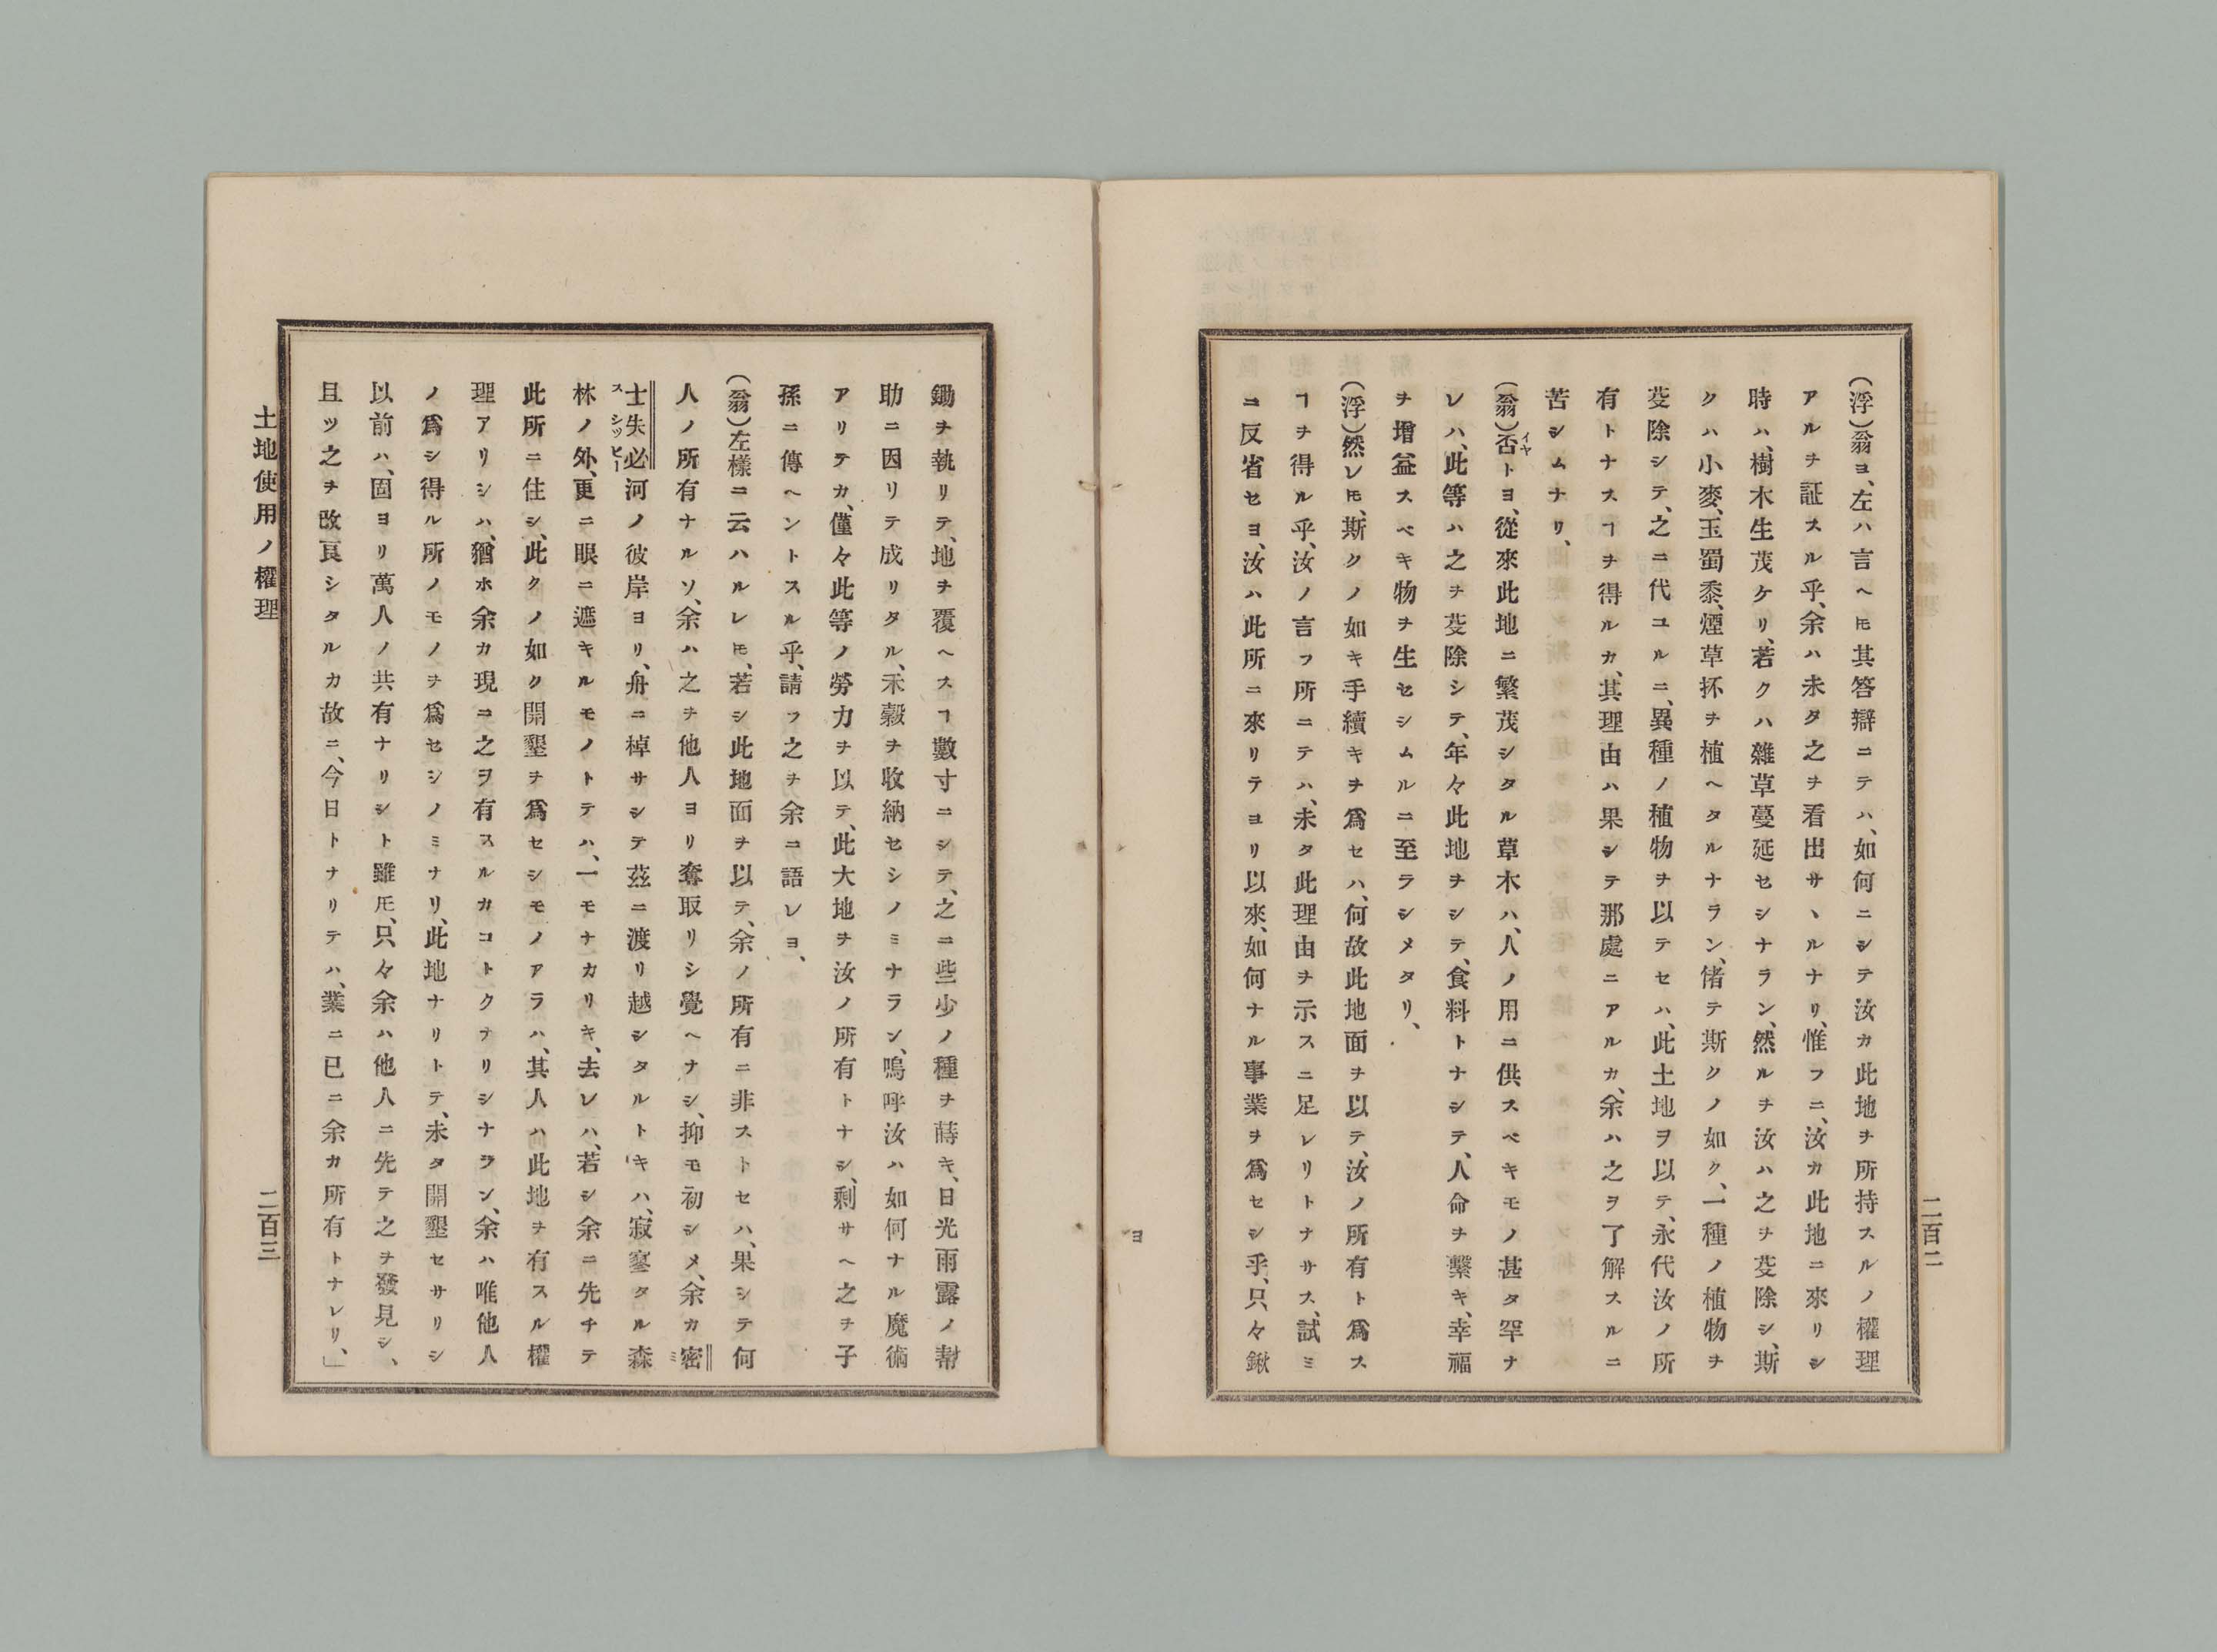 (浮)翁ヨ、左ハ言ヘㇳ゙モ其答辯ニテハ、如何ニシテ汝カ此地ヲ所持スルノ權理
アルヲ証スル乎、余ハ未タ之ヲ看出サヽルナリ、惟フニ、汝カ此地ニ來リシ
時ハ、樹木生茂ケリ、若クハ雜草蔓延セシナラン、然ルヲ汝ハ之ヲ芟除シ、斯
クハ小麥、玉蜀黍、煙草抔ヲ植ヘタルナラン、偖テ斯クノ如ク、一種ノ植物ヲ
芟除シテ、之ニ代ユルニ、異種ノ植物ヲ以テセハ、此土地ヲ以テ、永代汝ノ所
有トナスヿヲ得ルカ、其理由ハ果シテ那處ニアルカ、余ハ之ヲ了解スルニ
苦シムナリ、
(翁)否イヤトヨ、從來此地ニ繁茂シタル草木ハ、人ノ用ニ供スベキモノ甚タ罕ナ
レハ、此等ハ之ヲ芟除シテ、年々此地ヲシテ、食料トナシテ、人命ヲ繫キ、幸福
ヲ增益スベキ物ヲ生セシムルニ至ラシメタリ、
(浮)然レ𪜈、斯クノ如キ手續キヲ爲セハ、何故此地面ヲ以テ、汝ノ所有ト爲ス
ヿヲ得ル乎、汝ノ言フ所ニテハ、未タ此理由ヲ示スニ足レリトナサス、試ミ
ニ反省セヨ、汝ハ此所ニ來リテヨリ以來、如何ナル事業ヲ爲セシ乎、只々鍬
二百二
ヨ
鋤ヲ執リテ、地ヲ覆ヘスヿ數寸ニシテ、之ニ些少ノ種ヲ蒔キ、日光雨露ノ幇
助ニ因リテ成リタル、禾穀ヲ收納セシノミナラン、嗚呼汝ハ如何ナル魔術
アリテカ、僅々此等ノ勞力ヲ以テ、此大地ヲ汝ノ所有トナシ、剩サヘ之ヲ子
孫ニ傳ヘントスル乎、請フ之ヲ余ニ語レヨ、
(翁)左樣ニ云ハルレ𪜈、若シ此地面ヲ以テ、余ノ所有ニ非ストセハ、果シテ何
人ノ所有ナルソ、余ハ之ヲ他人ヨリ奪取リシ覺ヘナシ、抑モ初シメ、余カ密ミ
士ス失シッ必ピー河ノ彼岸ヨリ、舟ニ棹サシテ茲ニ渡リ越シタルトキハ、寂寥タル森
林ノ外、更ニ眼ニ遮キルモノトテハ、一モナカリキ、去レハ、若シ余ニ先チテ
此所ニ住シ、此クノ如ク開墾ヲ爲セシモノアラハ、其人ハ此地ヲ有スル權
理アリシハ、猶ホ余カ現ニ之ヲ有スルカコトクナリシナラン、余ハ唯他人
ノ爲シ得ル所ノモノヲ爲セシノミナリ、此地ナリトテ、未タ開墾セサリシ
以前ハ、固ヨリ萬人ノ共有ナリシト雖𪜈、只々余ハ他人ニ先テ之ヲ發見シ、
且ツ之ヲ改良シタルカ故ニ、今日トナリテハ、業ニ已ニ余カ所有トナレリ、」
土地使用ノ權理
二百三